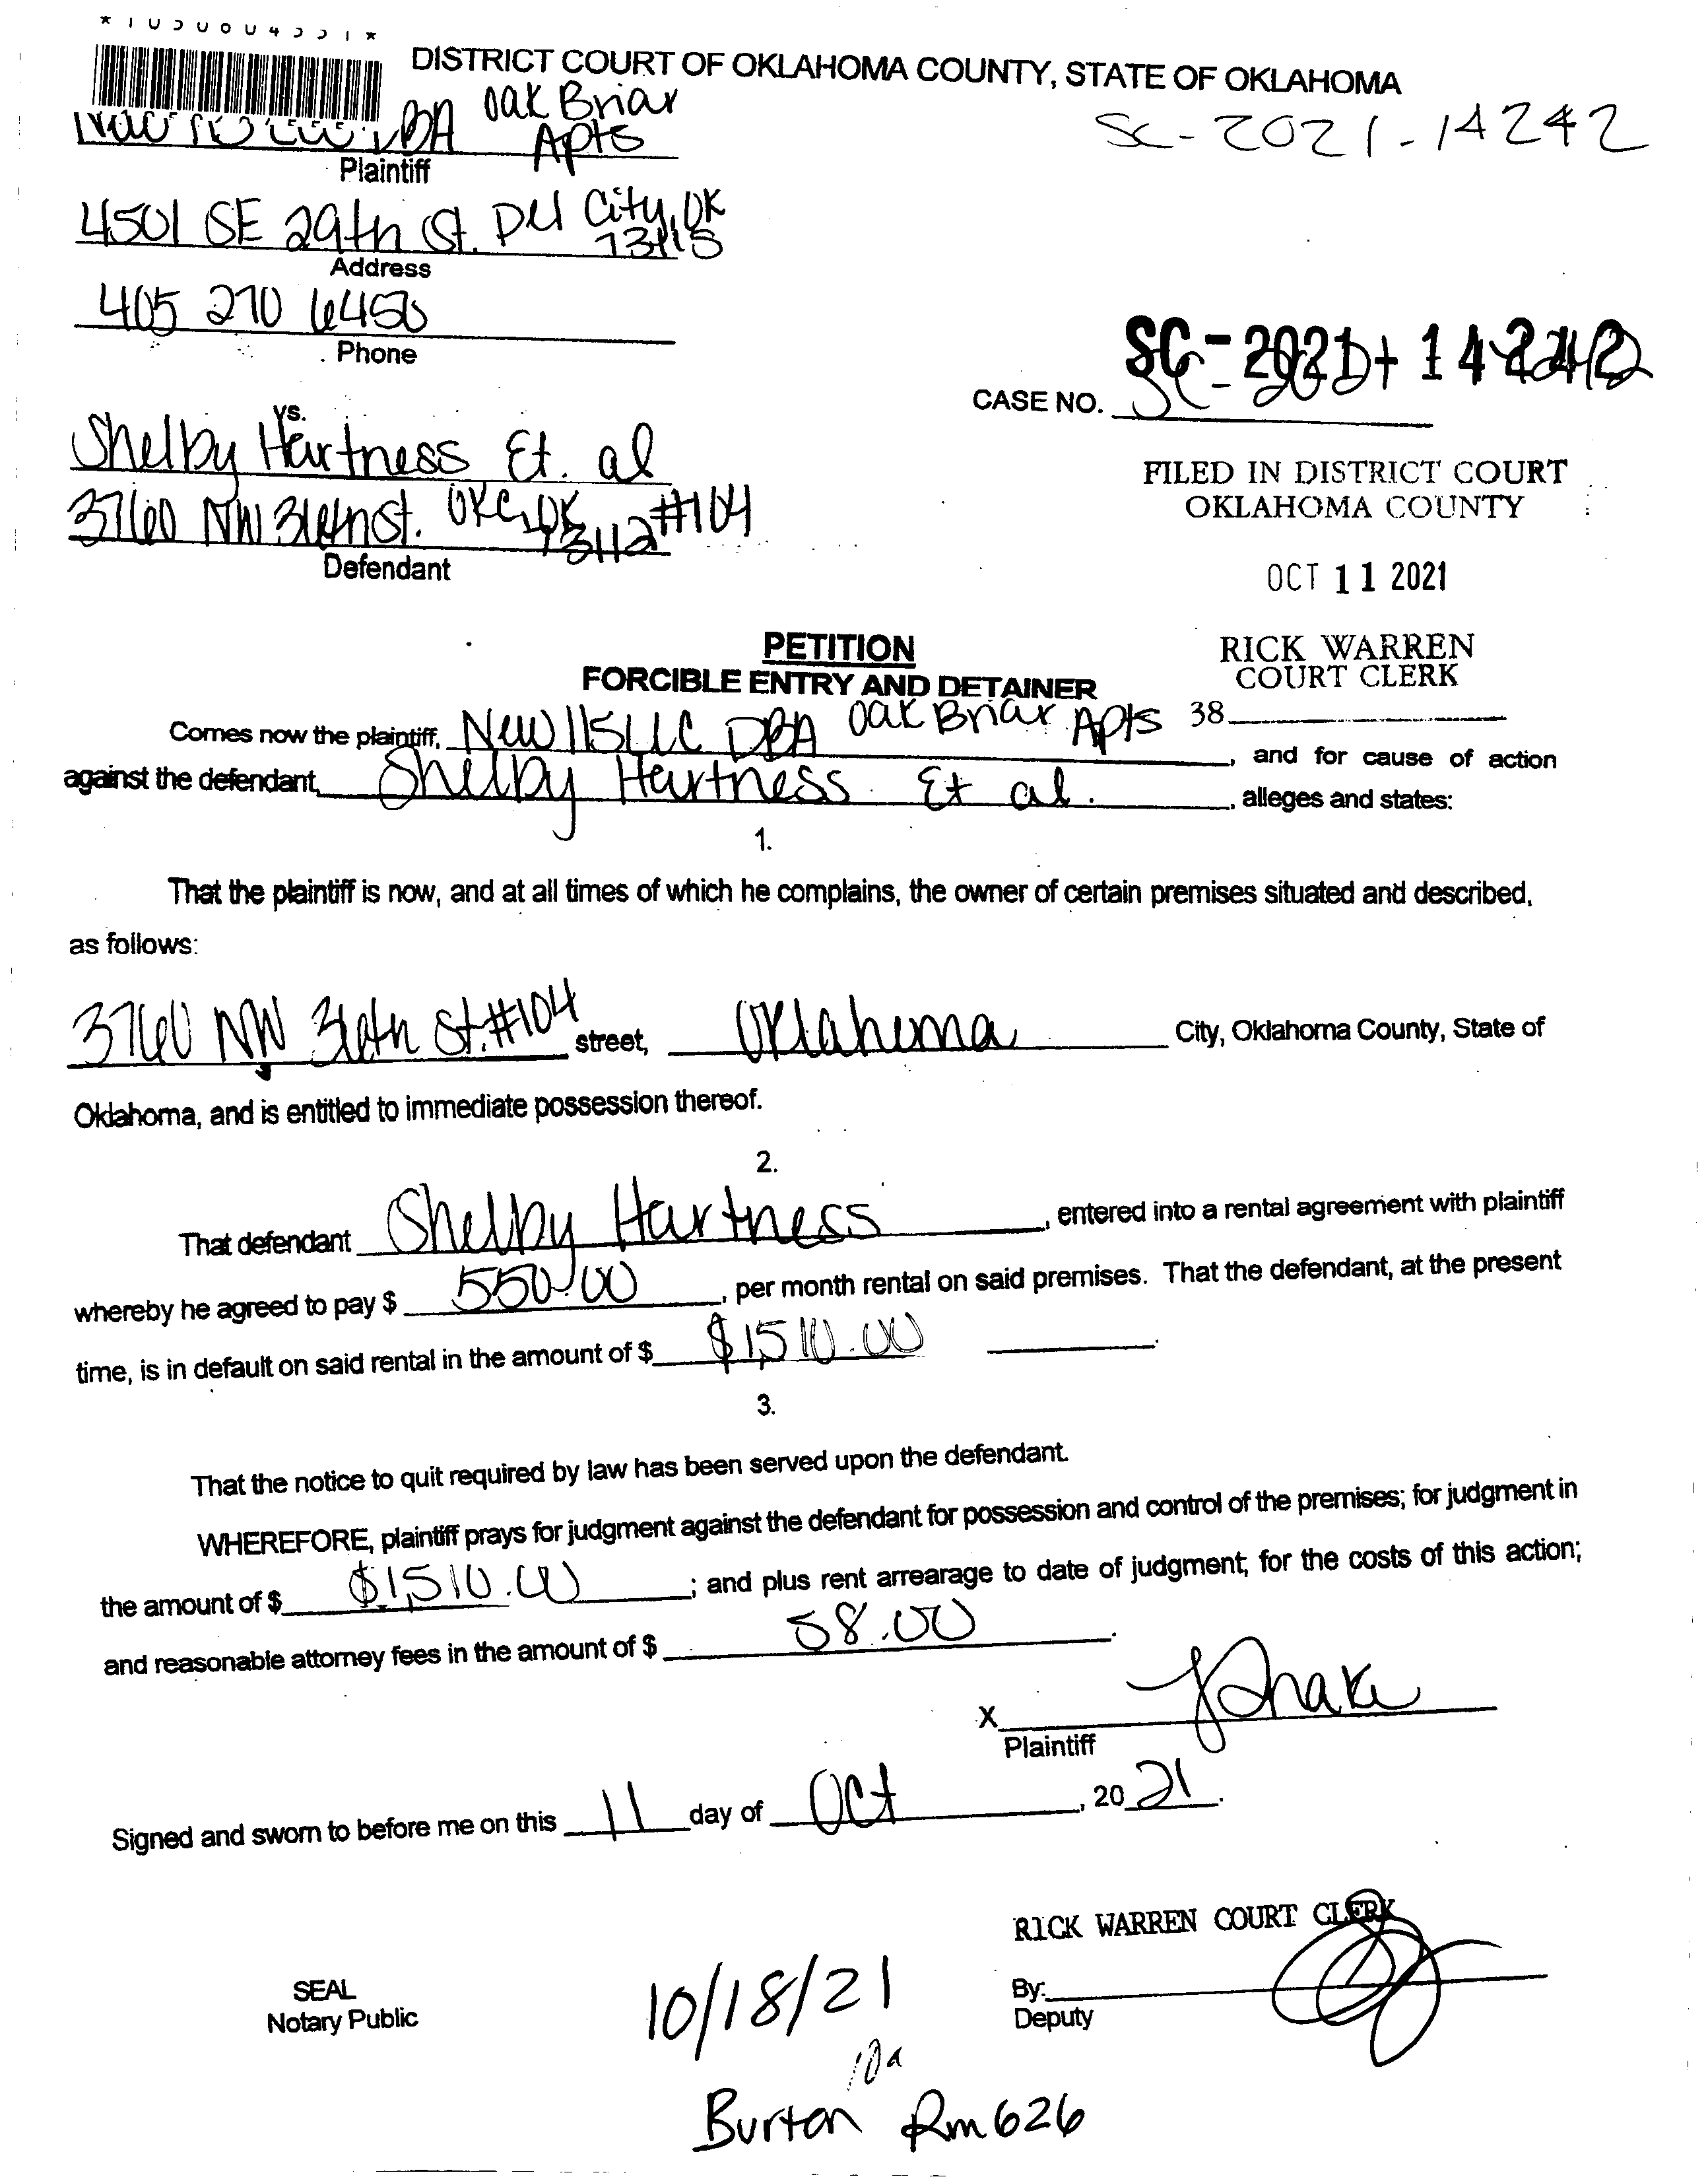 DISTRICT COURT OF OKLAHOMA COUNTY, STATE OF OKLAHOMA
DBA Oak Briar Apts
SC-2021-14242
Plaintiff
4501 SE 29th St. Del City, OK 73115
Address
405 270 6450
Phone
SC-2021-14242
CASE NO.
vs.
Shelby Hartness Et. al
3760 NW 36th St. OKC, OK 73112 #104
Defendant
FILED IN DISTRICT COURT
OKLAHOMA COUNTY
OCT 11 2021
RICK WARREN
COURT CLERK
38
PETITION
FORCIBLE ENTRY AND DETAINER
Comes now the plaintiff, New 115 LLC DBA Oak Briar Apts, and for cause of action
against the defendant, Shelby Hartness Et al., alleges and states:
1.
That the plaintiff is now, and at all times of which he complains, the owner of certain premises situated and described,
as follows:
3760 NW 36th St. #104 street, Oklahoma City, Oklahoma County, State of
Oklahoma, and is entitled to immediate possession thereof.
2.
That defendant Shelby Hartness, entered into a rental agreement with plaintiff
whereby he agreed to pay $ 550.00, per month rental on said premises. That the defendant, at the present
time, is in default on said rental in the amount of $ $1,510.00.
3.
That the notice to quit required by law has been served upon the defendant.
WHEREFORE, plaintiff prays for judgment against the defendant for possession and control of the premises; for judgment in
the amount of $ $1,510.00; and plus rent arrearage to date of judgment; for the costs of this action;
and reasonable attorney fees in the amount of $ 58.00.
X
Plaintiff
Signed and sworn to before me on this 11 day of Oct, 20 21.
RICK WARREN COURT CLERK
SEAL
Notary Public
By:
Deputy
10/18/21
10a
Burton Rm 626